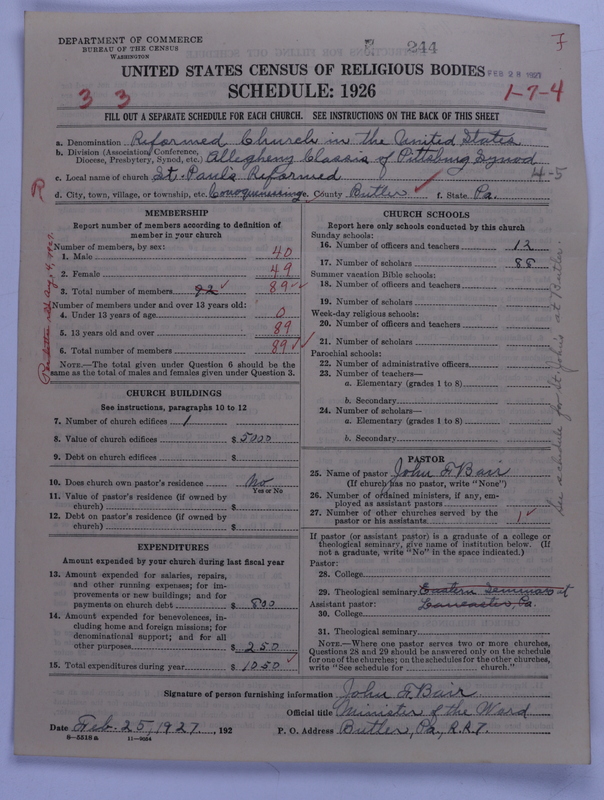 DEPARTMENT OF COMMERCE
BUREAU OF THE CENSUS
WASHINGTON
244
UNITED STATES CENSUS OF RELIGIOUS BODIES
FEB 28 1927
SCHEDULE: 1926
3 3
1-7-4
FILL OUT A SEPARATE SCHEDULE FOR EACH CHURCH. SEE INSTRUCTIONS ON THE BACK OF THIS SHEET
a. Denomination Reformed Church in the United States
b. Division (Association, Conference, Diocese, Presbytery, Synod, etc.) Allegheny Classis of Pittsburg Synod
4-5
c. Local name of church St. Paul's Reformed
d. City, town, village, or township, etc. e. County Butler f. State Pa.
MEMBERSHIP
Report number of members according to definition of
member in your church
Number of members, by sex:
1. Male 40
2. Female 49
3. Total number of members 92 89
Number of members under and over 13 years old:
4. Under 13 years of age 0
5. 13 years old and over 89
6. Total number of members 89
NOTE.—The total given under Question 6 should be the
same as the total of males and females given under Question 3.
CHURCH BUILDINGS
See instructions, paragraphs 10 to 12
7. Number of church edifices 1
8. Value of church edifices $ 5000
9. Debt on church edifices $
10. Does church own pastor's residence No
Yes or No
11. Value of pastor's residence (if owned by
church) $
12. Debt on pastor's residence (if owned by
church) $
EXPENDITURES
Amount expended by your church during last fiscal year
13. Amount expended for salaries, repairs,
and other running expenses; for im-
provements or new buildings; and for
payments on church debt $ 800
14. Amount expended for benevolences, in-
cluding home and foreign missions; for
denominational support; and for all
other purposes $ 250
15. Total expenditures during year $ 1050
CHURCH SCHOOLS
Report here only schools conducted by this church
Sunday schools:
16. Number of officers and teachers 12
17. Number of scholars 88
Summer vacation Bible schools:
18. Number of officers and teachers
19. Number of scholars
Week-day religious schools:
20. Number of officers and teachers
21. Number of scholars
Parochial schools:
22. Number of administrative officers
23. Number of teachers—
a. Elementary (grades 1 to 8)
b. Secondary
24. Number of scholars—
a. Elementary (grades 1 to 8)
b. Secondary
See schedule for St. Johns at Butler
PASTOR
25. Name of pastor John F Bair
(If church has no pastor, write "None")
26. Number of ordained ministers, if any, em-
ployed as assistant pastors
27. Number of other churches served by the
pastor or his assistants 1
If pastor (or assistant pastor) is a graduate of a college or
theological seminary, give name of institution below. (If
not a graduate, write "No" in the space indicated.)
Pastor:
28. College
29. Theological seminary Eastern Seminary at
Assistant pastor: Lancaster, Pa.
30. College
31. Theological seminary
NOTE.—Where one pastor serves two or more churches,
Questions 28 and 29 should be answered only on the schedule
for one of the churches; on the schedules for the other churches,
write "See schedule for ... church."
Signature of person furnishing information John F Bair
Official title Minister of the Word
Date Feb. 25, 1927, 192
P. O. Address Butler, Pa., R.R.7.
8-5518a 11-9564